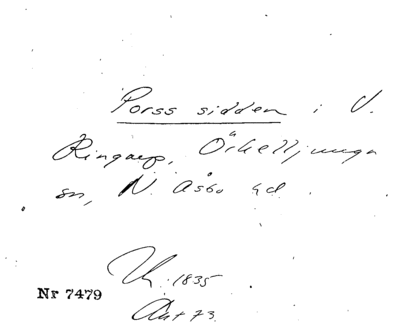 Porss sidden i V.
Ringarp, Örkelljunga
sn, N. Åsbo hd.
1835
Nr 7479
Akt 73.